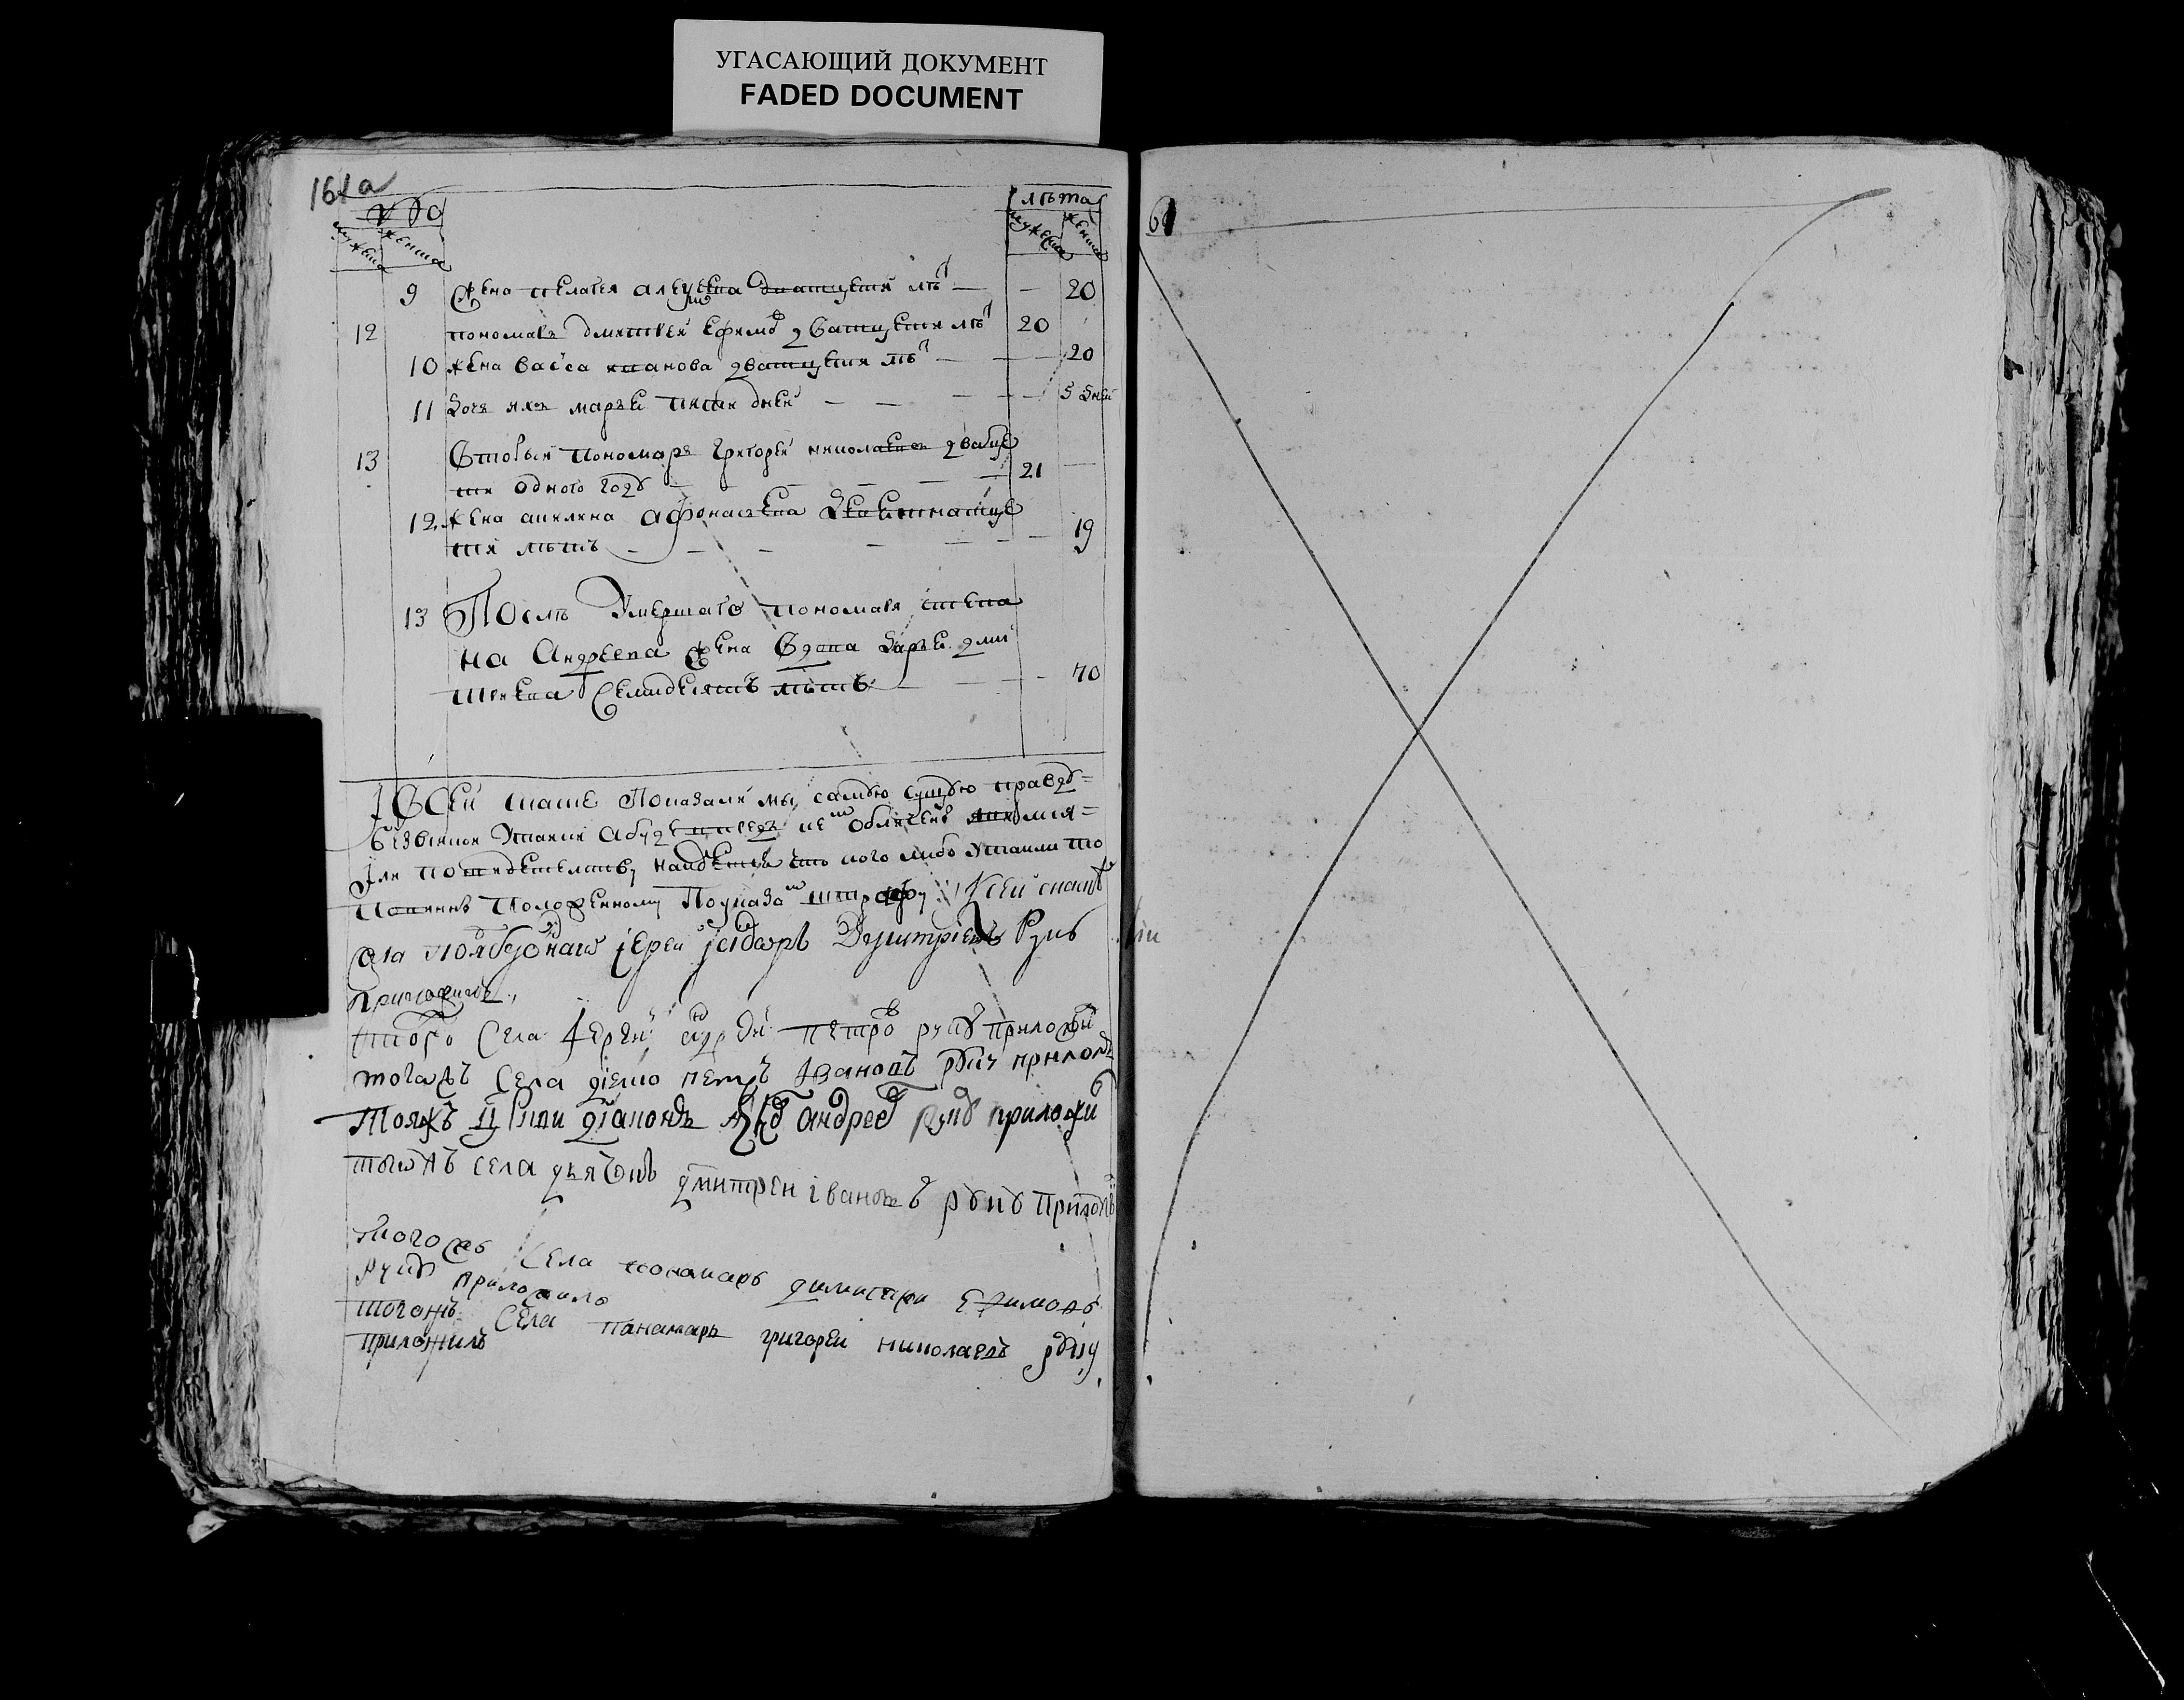 УГАСАЮЩИЙ ДОКУМЕНТ
FADED DOCUMENT
161а
лѣта
мужеска женска
мужеска женска
9 жена пелагея дватцети лѣт — — 20
12 пономарь дмитрей ефимов дватцети лѣт 20
10 жена васса иванова дватцети лѣт — — 20
11 дочь ихъ марья пяти дней — — 5 дней
13 Вторыи пономарь григорей николаевъ дватце
ти одного году — — 21
12 жена акилина афонасьева девятнатце
ти лѣтъ — — 19
13 Послѣ умершаго пономаря степа
на Андреева жена вдова дарья дми
триева семидесятъ лѣтъ — — 70
I В сей сказке показали мы самую сущую правду
без всякои утаики а буде впредь кем обличены
или по свидетелству наидется что кого либо утаили то
повинны положенному по указом штрафу К сей сказке
села иерей исидоръ Димитріевъ руку
приложилъ
того села иерей андрей петров руку приложил
тогожъ села діяконъ петръ Ивановъ руку приложил
тояжъ церкви діаконъ андреев руку приложил
тогожъ села дьячокъ дмитреи ивановъ руку приложилъ
тогожъ села пономарь димитри Ефимовъ
руку приложилъ
тогожъ села панамарь григореи николаевъ руку
приложилъ